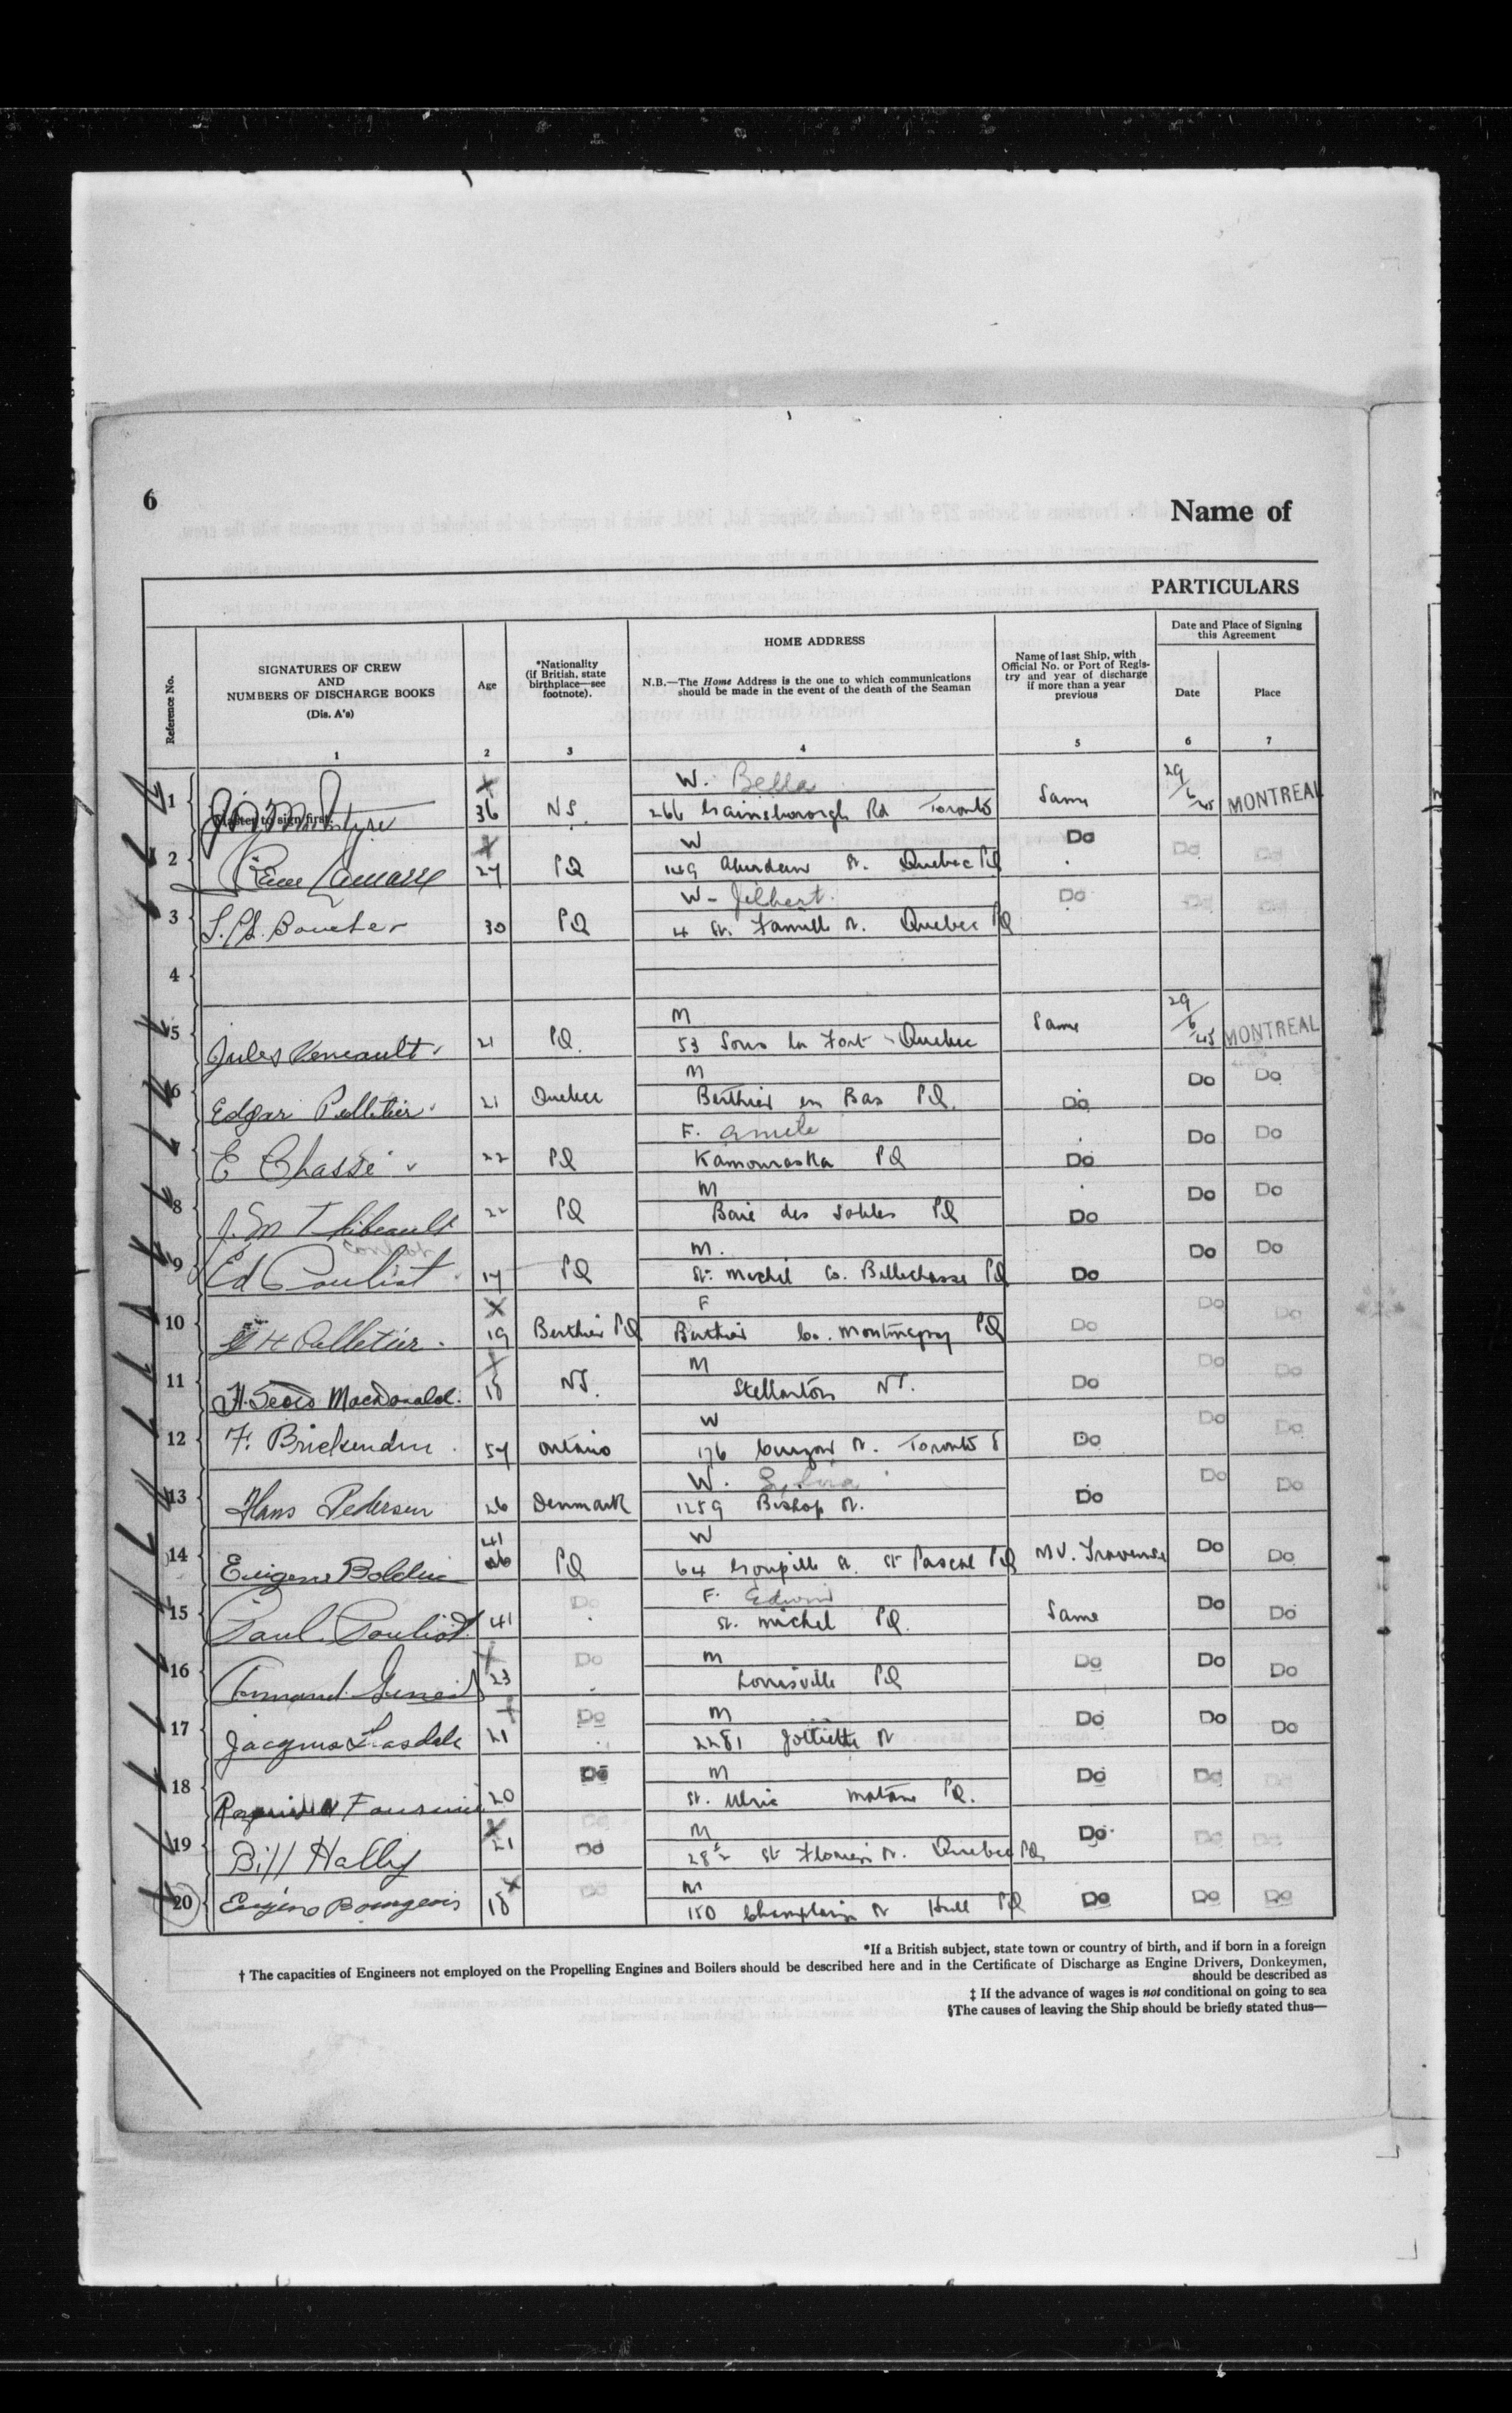 6
Name of
PARTICULARS
Reference No.
SIGNATURES OF CREW
AND
NUMBERS OF DISCHARGE BOOKS
(Dis. A's)
1
Age
2
*Nationality
(if British, state
birthplace—see
footnote).
3
HOME ADDRESS
N.B.—The Home Address is the one to which communications
should be made in the event of the death of the Seaman
4
Name of last Ship, with
Official No. or Port of Regis-
try and year of discharge
if more than a year
previous
5
Date and Place of Signing
this Agreement
Date
6
Place
7
W. Bella
1 Master to sign first. 36 NS. 266 Gainsborough Rd Toronto Same 29/6/45 MONTREAL
W
2 27 PQ 149 Aberdeen St. Quebec PQ Do Do Do
W - Jilbert
3 Boucher 30 PQ 4 St. Famille St. Quebec PQ Do Do Do
4
M
5 Jules 21 PQ. 53 Sous le Fort Quebec Same 29/6/45 MONTREAL
M
6 Edgar Pelletier 21 Quebec Berthier en Bas PQ. Do Do Do
F.
7 E Chassé 22 PQ Kamouraska PQ Do Do Do
M
8 J. M Thibeault 22 PQ Baie des Sables PQ Do Do Do
M.
9 Ed Pouliot 17 PQ St. Michel Co. Bellechasse PQ Do Do Do
F
10 H Pelletier 19 Berthier PQ Berthier Co. Montmagny PQ Do Do Do
M
11 MacDonald. 18 NS. Stellarton NS. Do Do Do
W
12 F. Brickenden 57 Ontario 176 Curzon St. Toronto 8 Do Do Do
W.
13 Hans Pedersen 26 Denmark 1259 Bishop St. Do Do Do
W
14 Eugene Bolduc 41 PQ 64 St. St Pascal PQ MV. Do Do
F. Edwin
15 Paul Pouliot 41 Do St. Michel PQ. Same Do Do
M
16 23 Do Louisville PQ Do Do Do
M
17 Jacques 21 Do 2281 Joliette St Do Do Do
M
18 20 Do St. Ulric Matane PQ. Do Do Do
M
19 Bill Hally 21 Do St. Quebec PQ Do Do Do
M
20 Eugène Bourgeois 18 Do 150 Champlain St Hull PQ Do Do Do
*If a British subject, state town or country of birth, and if born in a foreign
† The capacities of Engineers not employed on the Propelling Engines and Boilers should be described here and in the Certificate of Discharge as Engine Drivers, Donkeymen,
should be described as
‡ If the advance of wages is not conditional on going to sea
§The causes of leaving the Ship should be briefly stated thus—